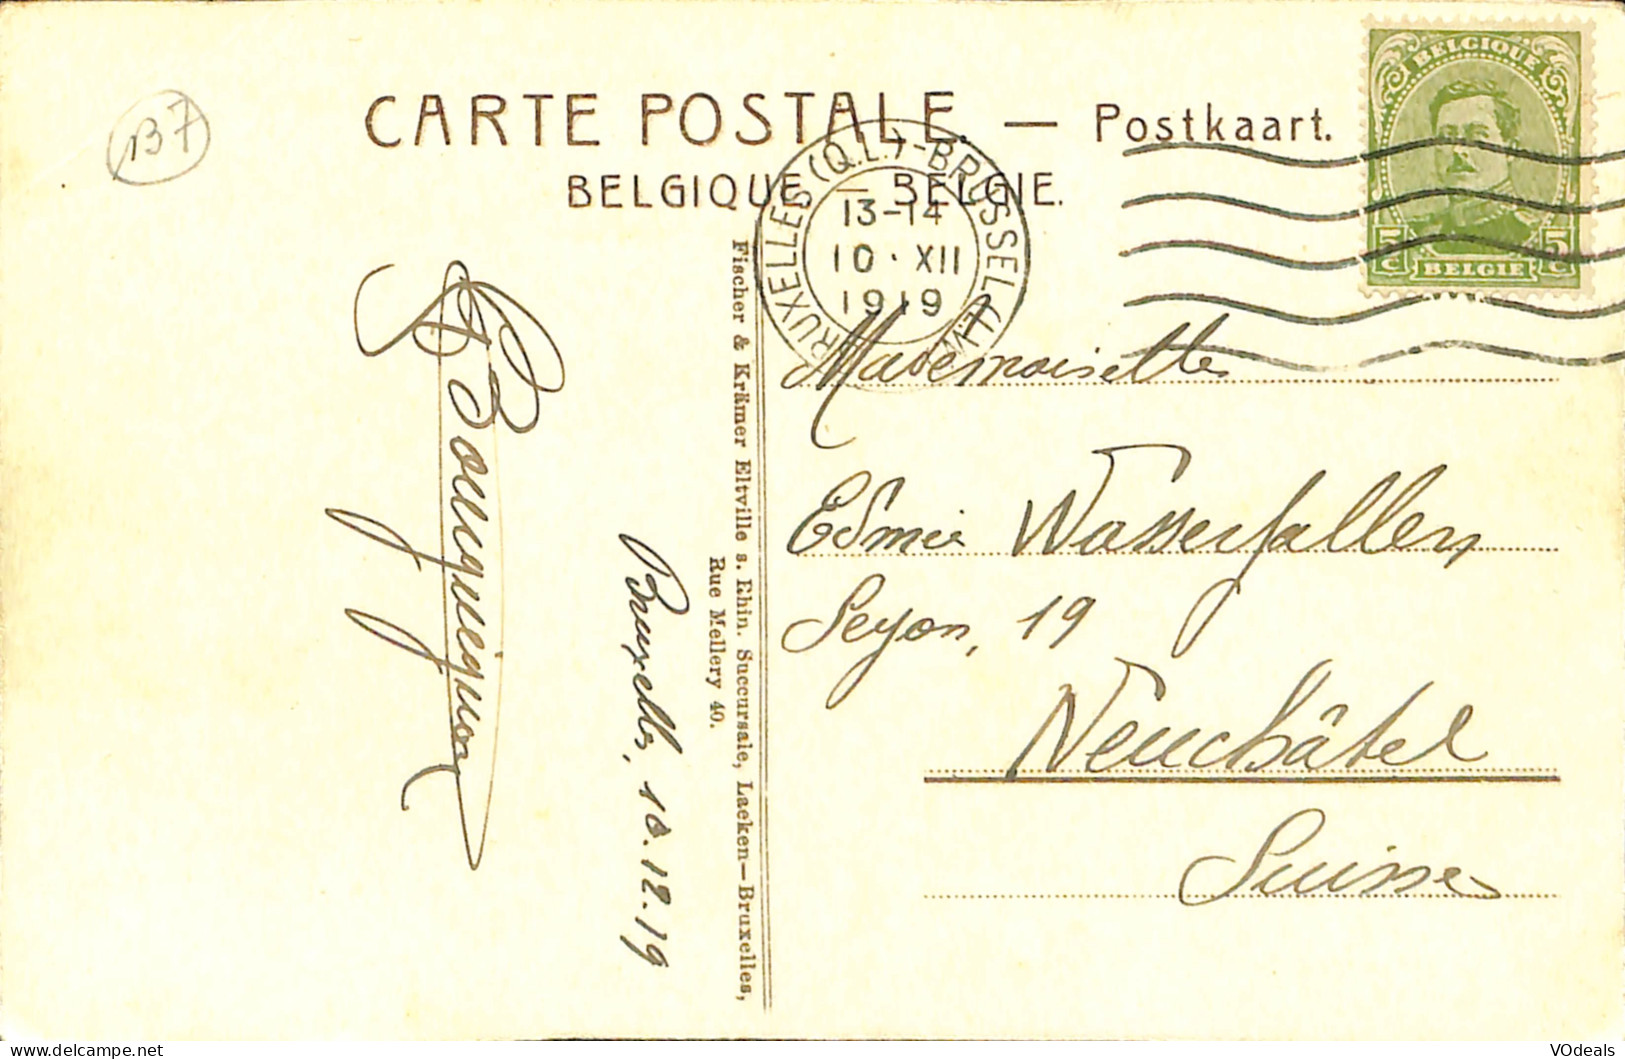 B7
CARTE POSTALE. — Postkaart.
BELGIQUE — BELGIE.
BELGIQUE
5 c 5 c
BELGIE
BRUXELLES (Q.L.) - BRUSSEL (L.W.)
13-14
10 · XII
1919
Fischer & Krämer Eltville a. Rhin. Succursale, Laeken—Bruxelles,
Rue Mellery 40.
Bourguignon
Bruxelles, 10.12.19
Mademoiselle
Edmée Wasserfallen
Seyon, 19
Neuchâtel
Suisse
VOdeals
delcampe.net